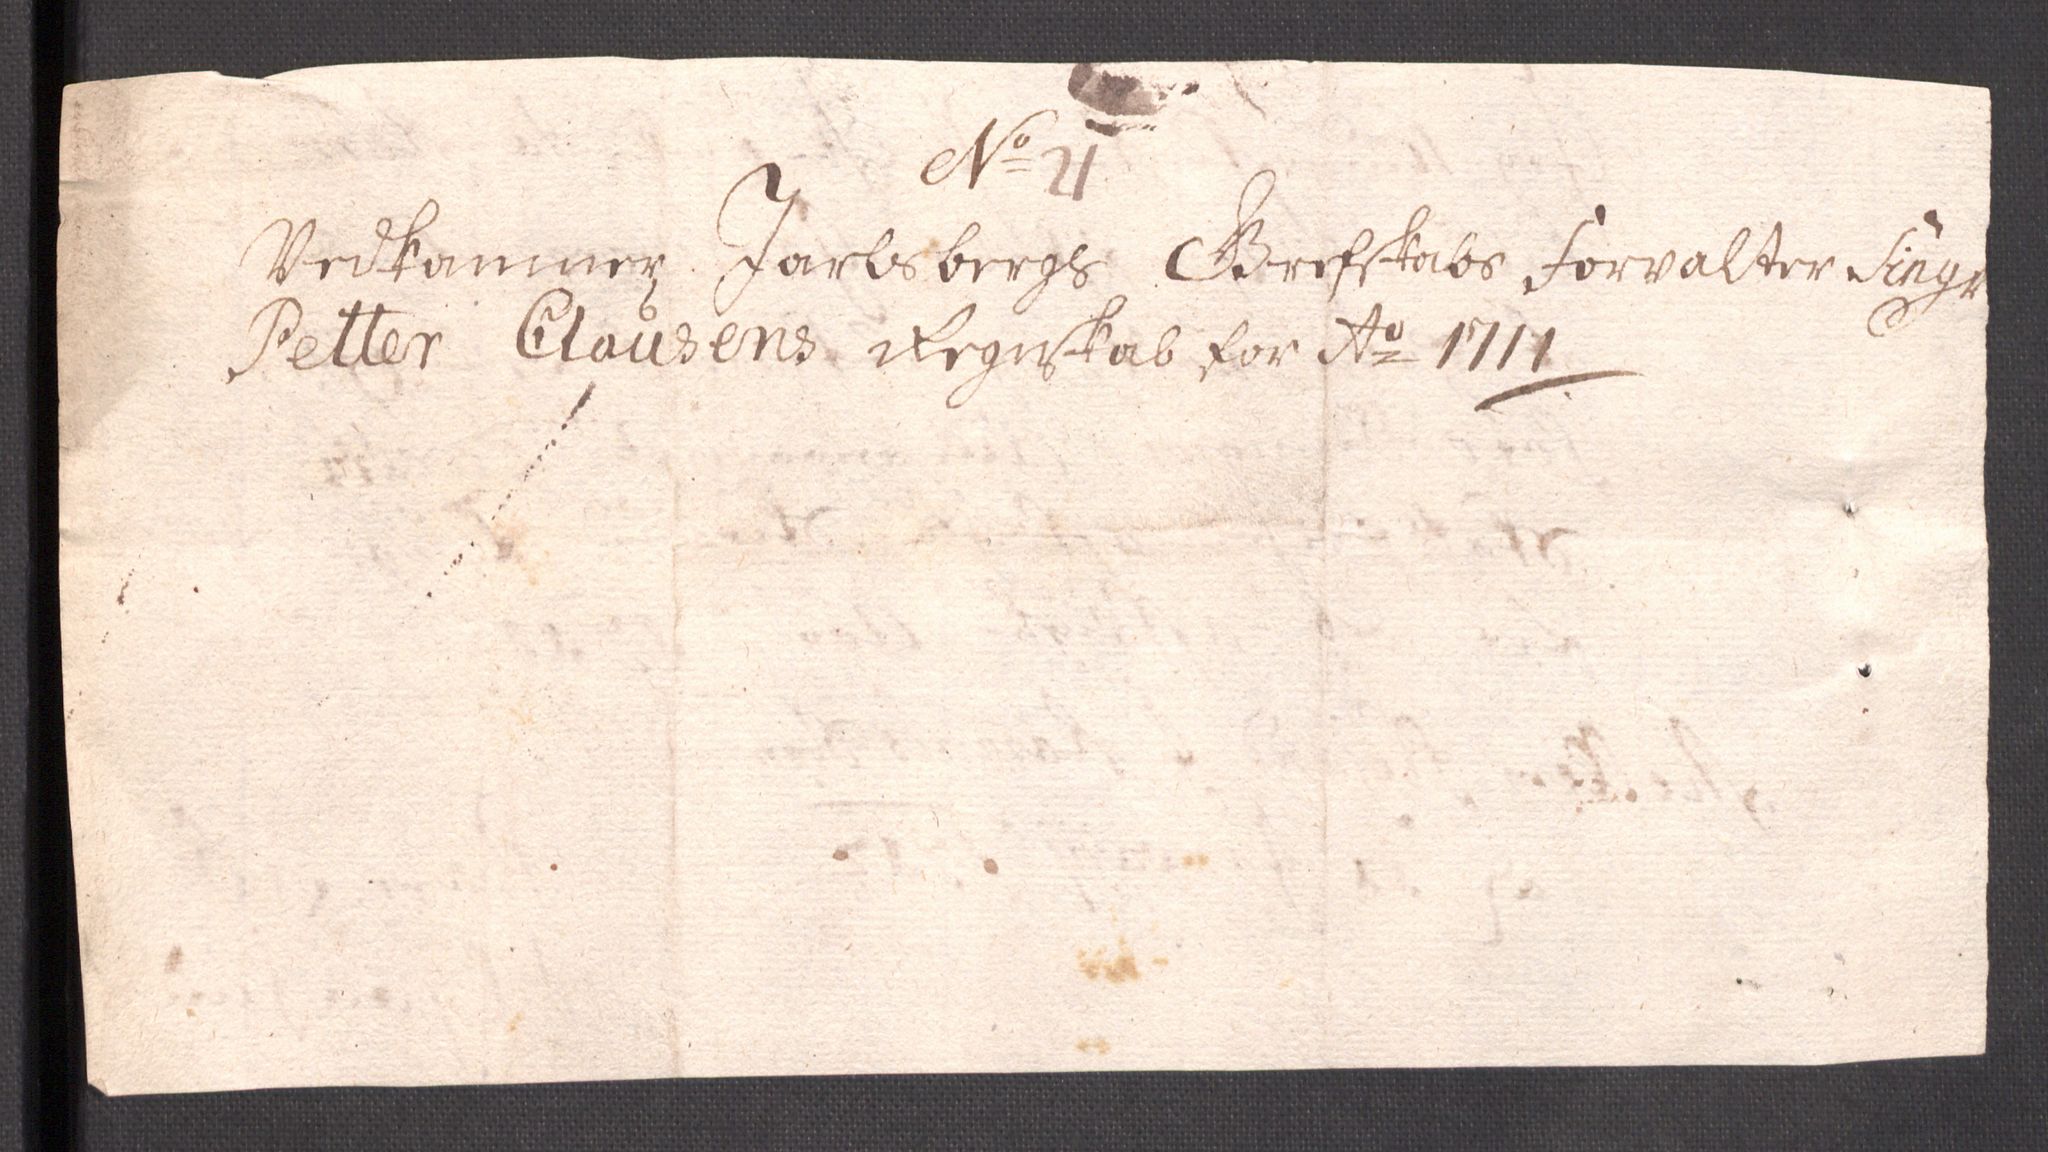 No 21
Vedkammer Jarlsbergs Grefskabs Forvalter Sing^r
Petter Clausens Regnskab for Ao 1711